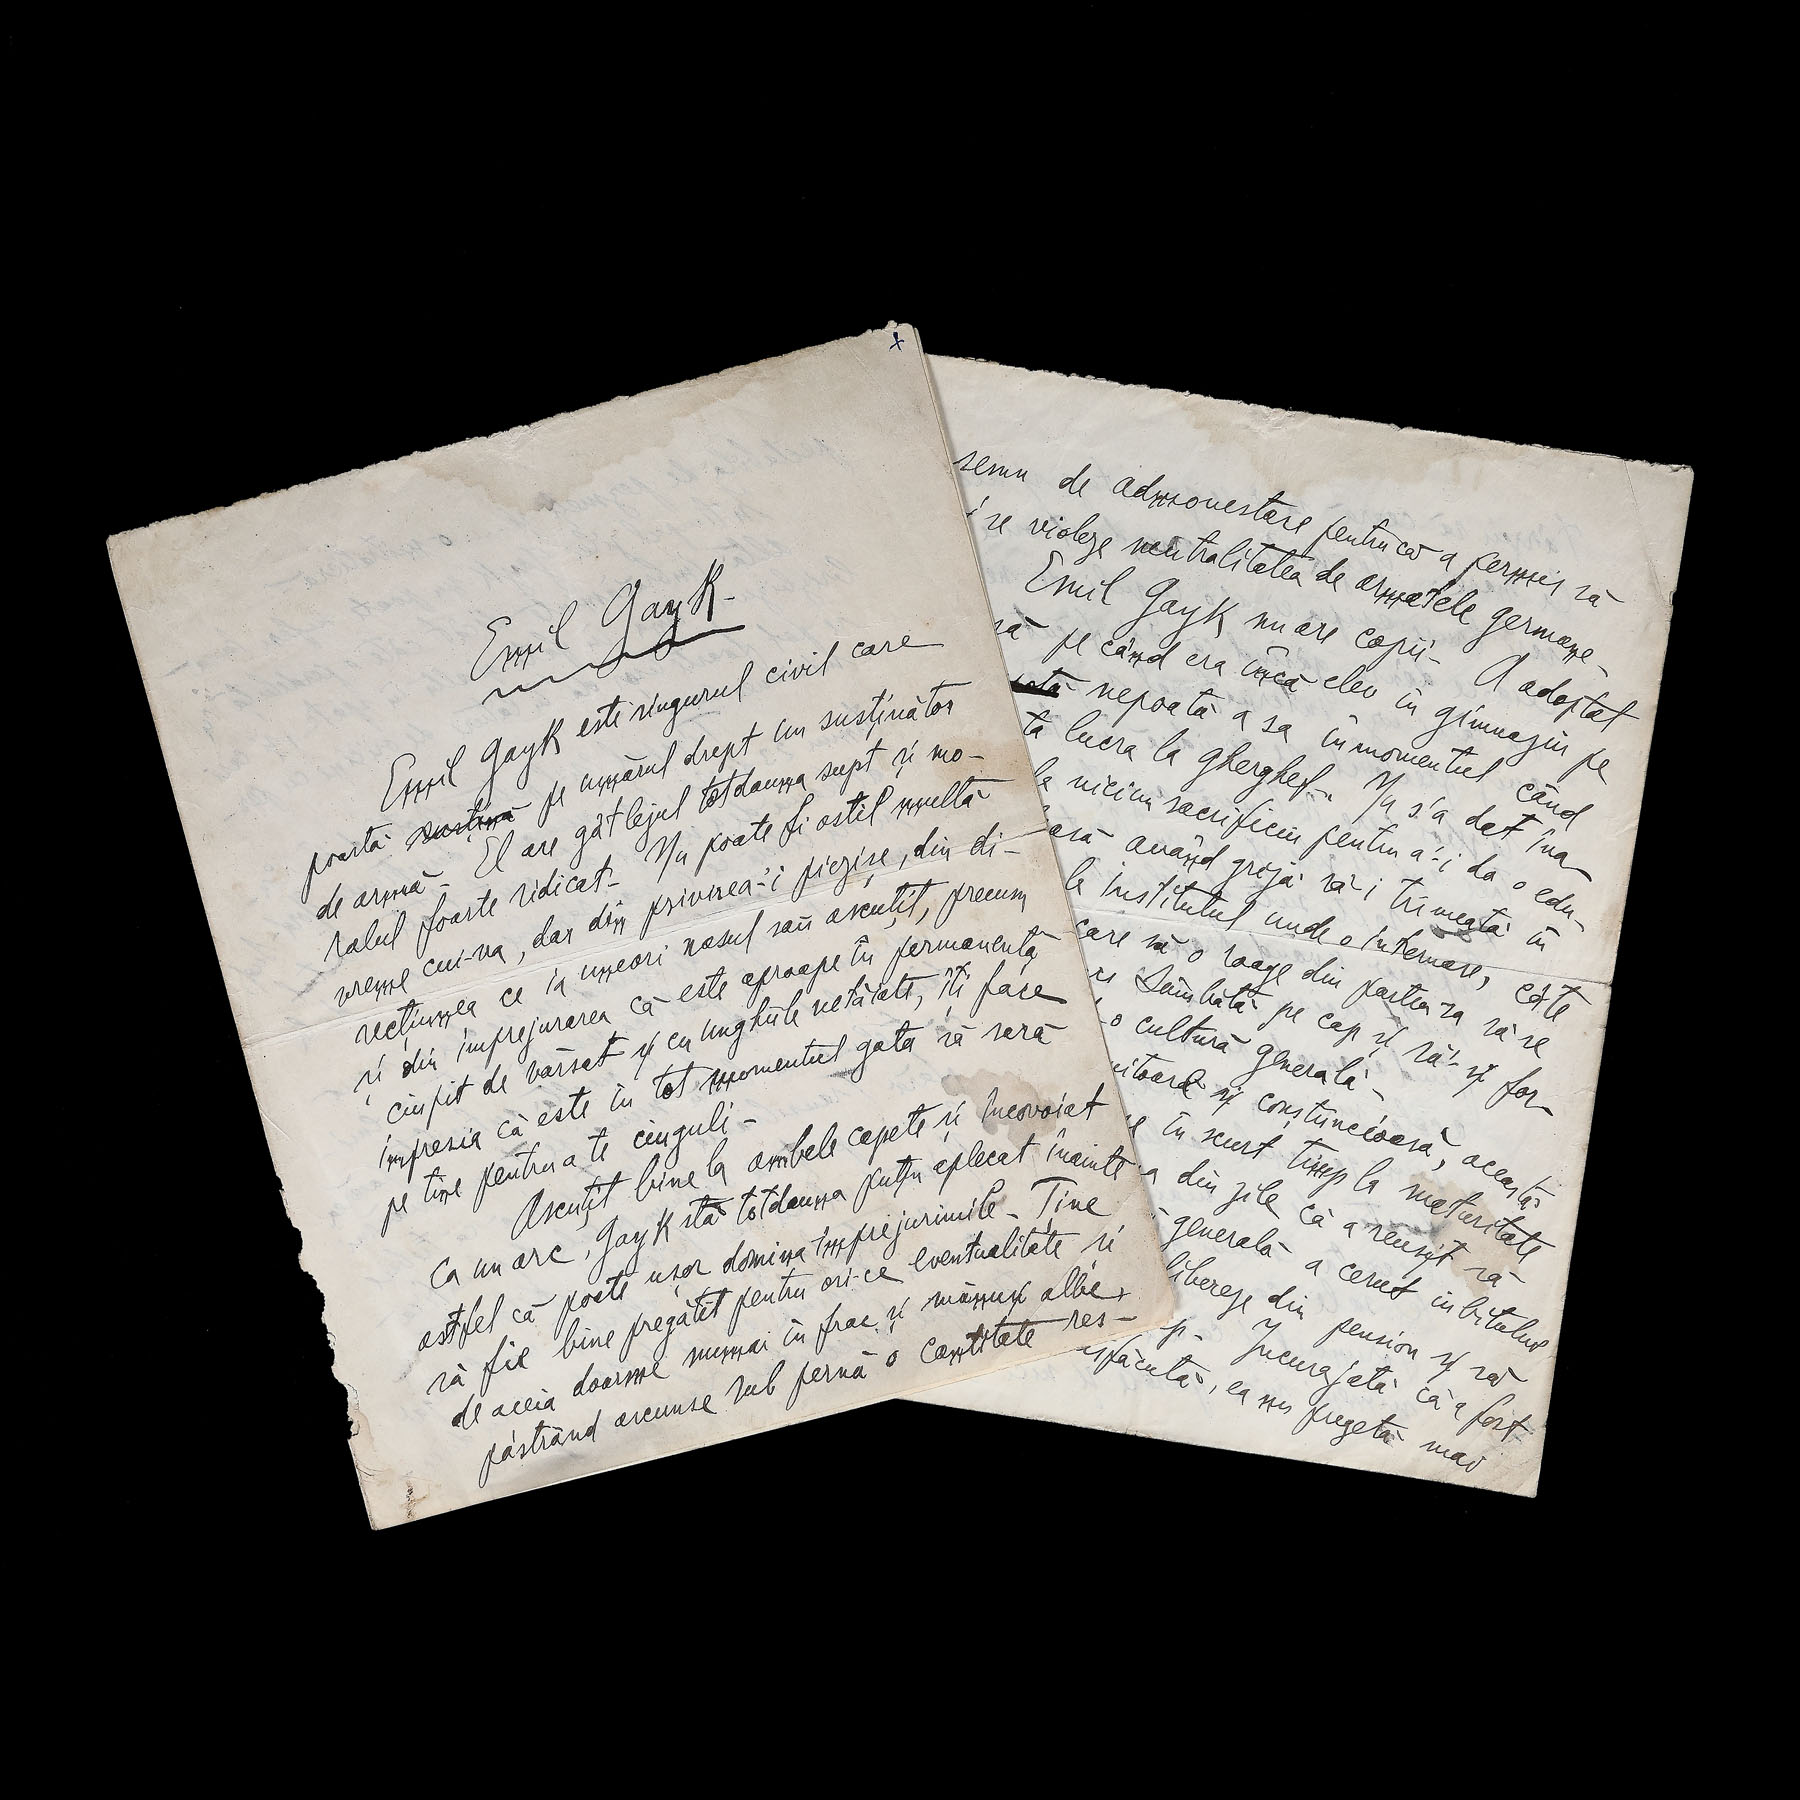 Emil Gayk-
Emil Gayk este singurul civil care
poartă susţină pe umărul drept un susţinător
de armă- El are gâtlejul totdauna supt şi mo-
ralul foarte ridicat- Nu poate fi ostil multă
vreme cui-va, dar din privirea-i piezişe, din di-
recţiunea ce ia uneori nasul său ascuţit, precum
şi din împrejurarea că este aproape în permanenţă
ciupit de vărsat şi cu unghiile netăiate, îţi face
impresia că este în tot momentul gata să sară
pe tine pentru a te ciuguli-
Ascuţit bine la ambele capete şi încovoiat
ca un arc, Gayk stă totdauna puţin aplecat înainte
astfel că poate uşor domina împrejurimile- Ţine
să fie bine pregătit pentru ori-ce eventualitate şi
de aceia doarme numai în frac şi mănuşi albe,
păstrând ascunse sub pernă o cantitate res-
semn de admonestare pentrucă a permis să
i se violeze neutralitatea de armatele germane-
Emil Gayk nu are copii- A adoptat
să pe când era încă elev în gimnaziu pe
nepoată a sa în momentul când
ta lucra la gherghef- Nu s'a dat îna-
la niciun sacrificiu pentru a-i da o edu-
asă având grijă să-i trimeată în
la institutul unde o internase, câte
care să o roage din partea sa să se
Sâmbătă pe cap şi să-şi for-
o cultură generală-
uitoare şi conştiincioasă, această
în scurt timp la maturitate
a din zile că a reuşit să
generală a cerut iubitului
libereze din pension şi să
p- Încurajată că a fost
isfăcută, ea nu pregetă mai